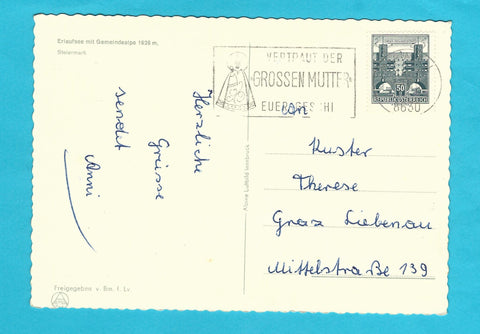 Erlaufsee mit Gemeindealpe 1626 m.
Steiermark
Herzliche
Grüsse
sendet
Anni
Freigegeben v. Bm. f. Lv.
Alpine Luftbild Innsbruck
VERTRAUT DER
GROSSEN MUTTER
50
REPUBLIK ÖSTERREICH
8630
an
Kuster
Therese
Graz Liebenau
Mittelstraße 139